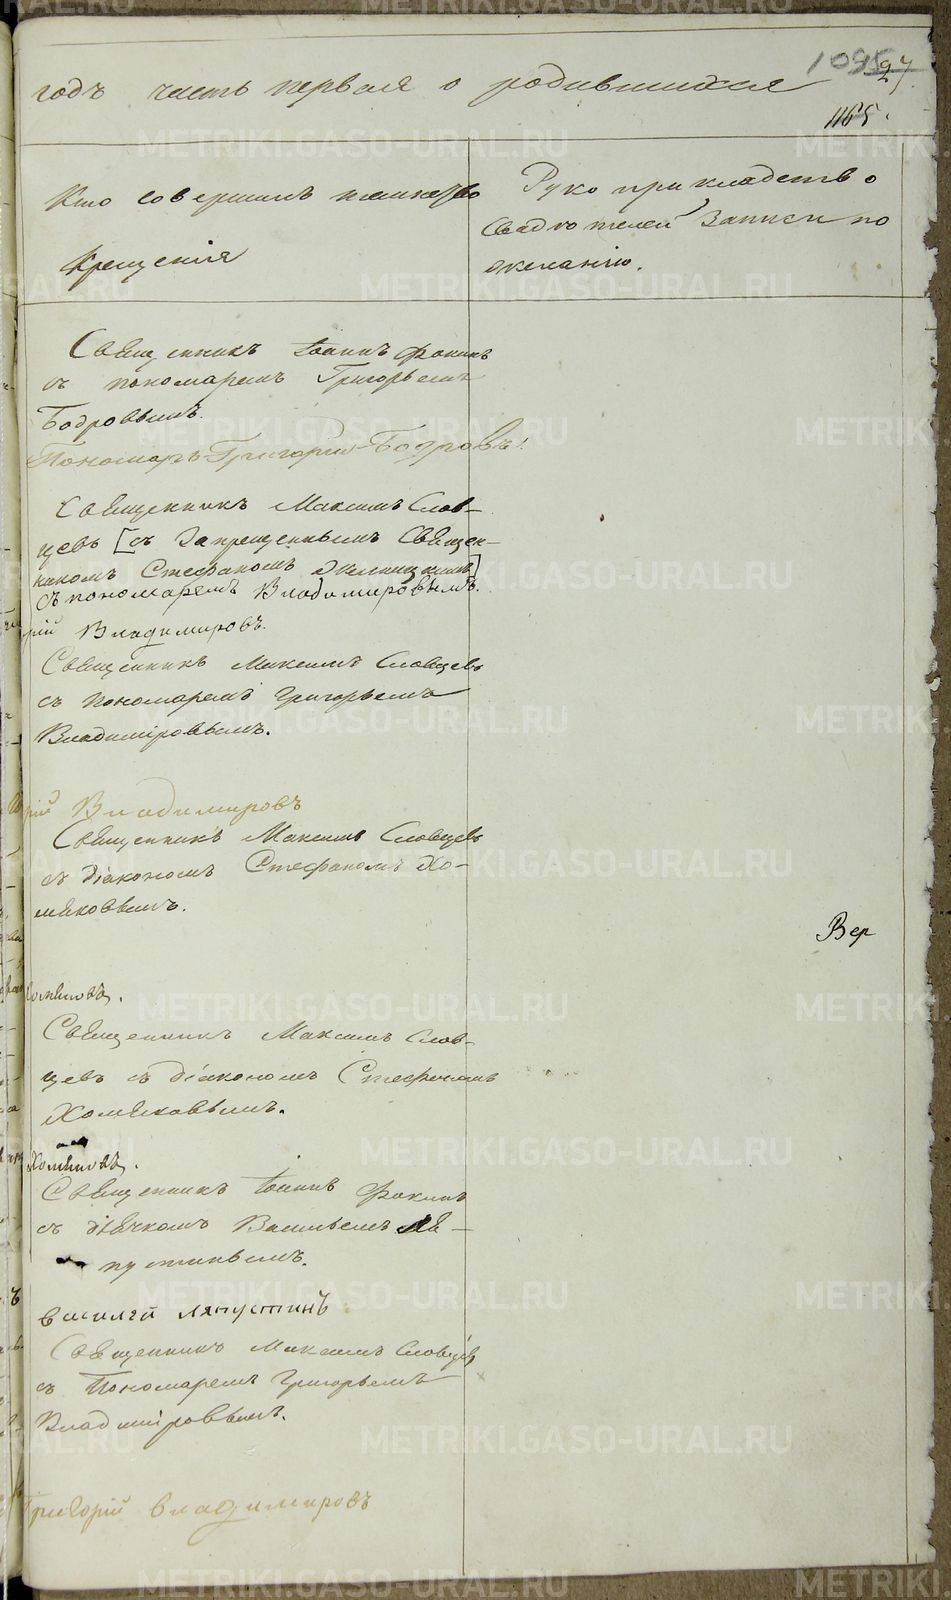 годъ часть первая о родившихся
27
1165.
Кто совершилъ таинство
Крещенія
Рукоприкладство
свидѣтелей записи по
желанію.
Священникъ Іоаннъ Фокинъ
съ пономаремъ Григорьемъ
Бодровымъ.
Пономарь Григорій Бодровъ.
Священникъ Максимъ Слов-
цевъ [съ запрещеннымъ Священ-
никомъ Стефаномъ]
съ пономаремъ Владимировымъ.
рій Владимировъ.
Священникъ Максимъ Словцевъ
съ пономаремъ Григорьемъ
Владиміровымъ.
рій Владимировъ
Священникъ Максимъ Словцевъ
съ діакономъ Стефаномъ Хо-
мяковымъ.
Вер
Хомяковъ.
Священникъ Максимъ Слов-
цевъ съ діакономъ Стефаномъ
Хомяковымъ.
Хомяковъ.
Священникъ Іоаннъ Фокинъ
съ дьячкомъ Васильемъ Ля-
пустинымъ.
василей ляпустинъ
Священникъ Максимъ Словцевъ
съ Пономаремъ Григорьемъ
Владиміровымъ.
Григорій владимировъ
METRIKI.GASO-URAL.RU